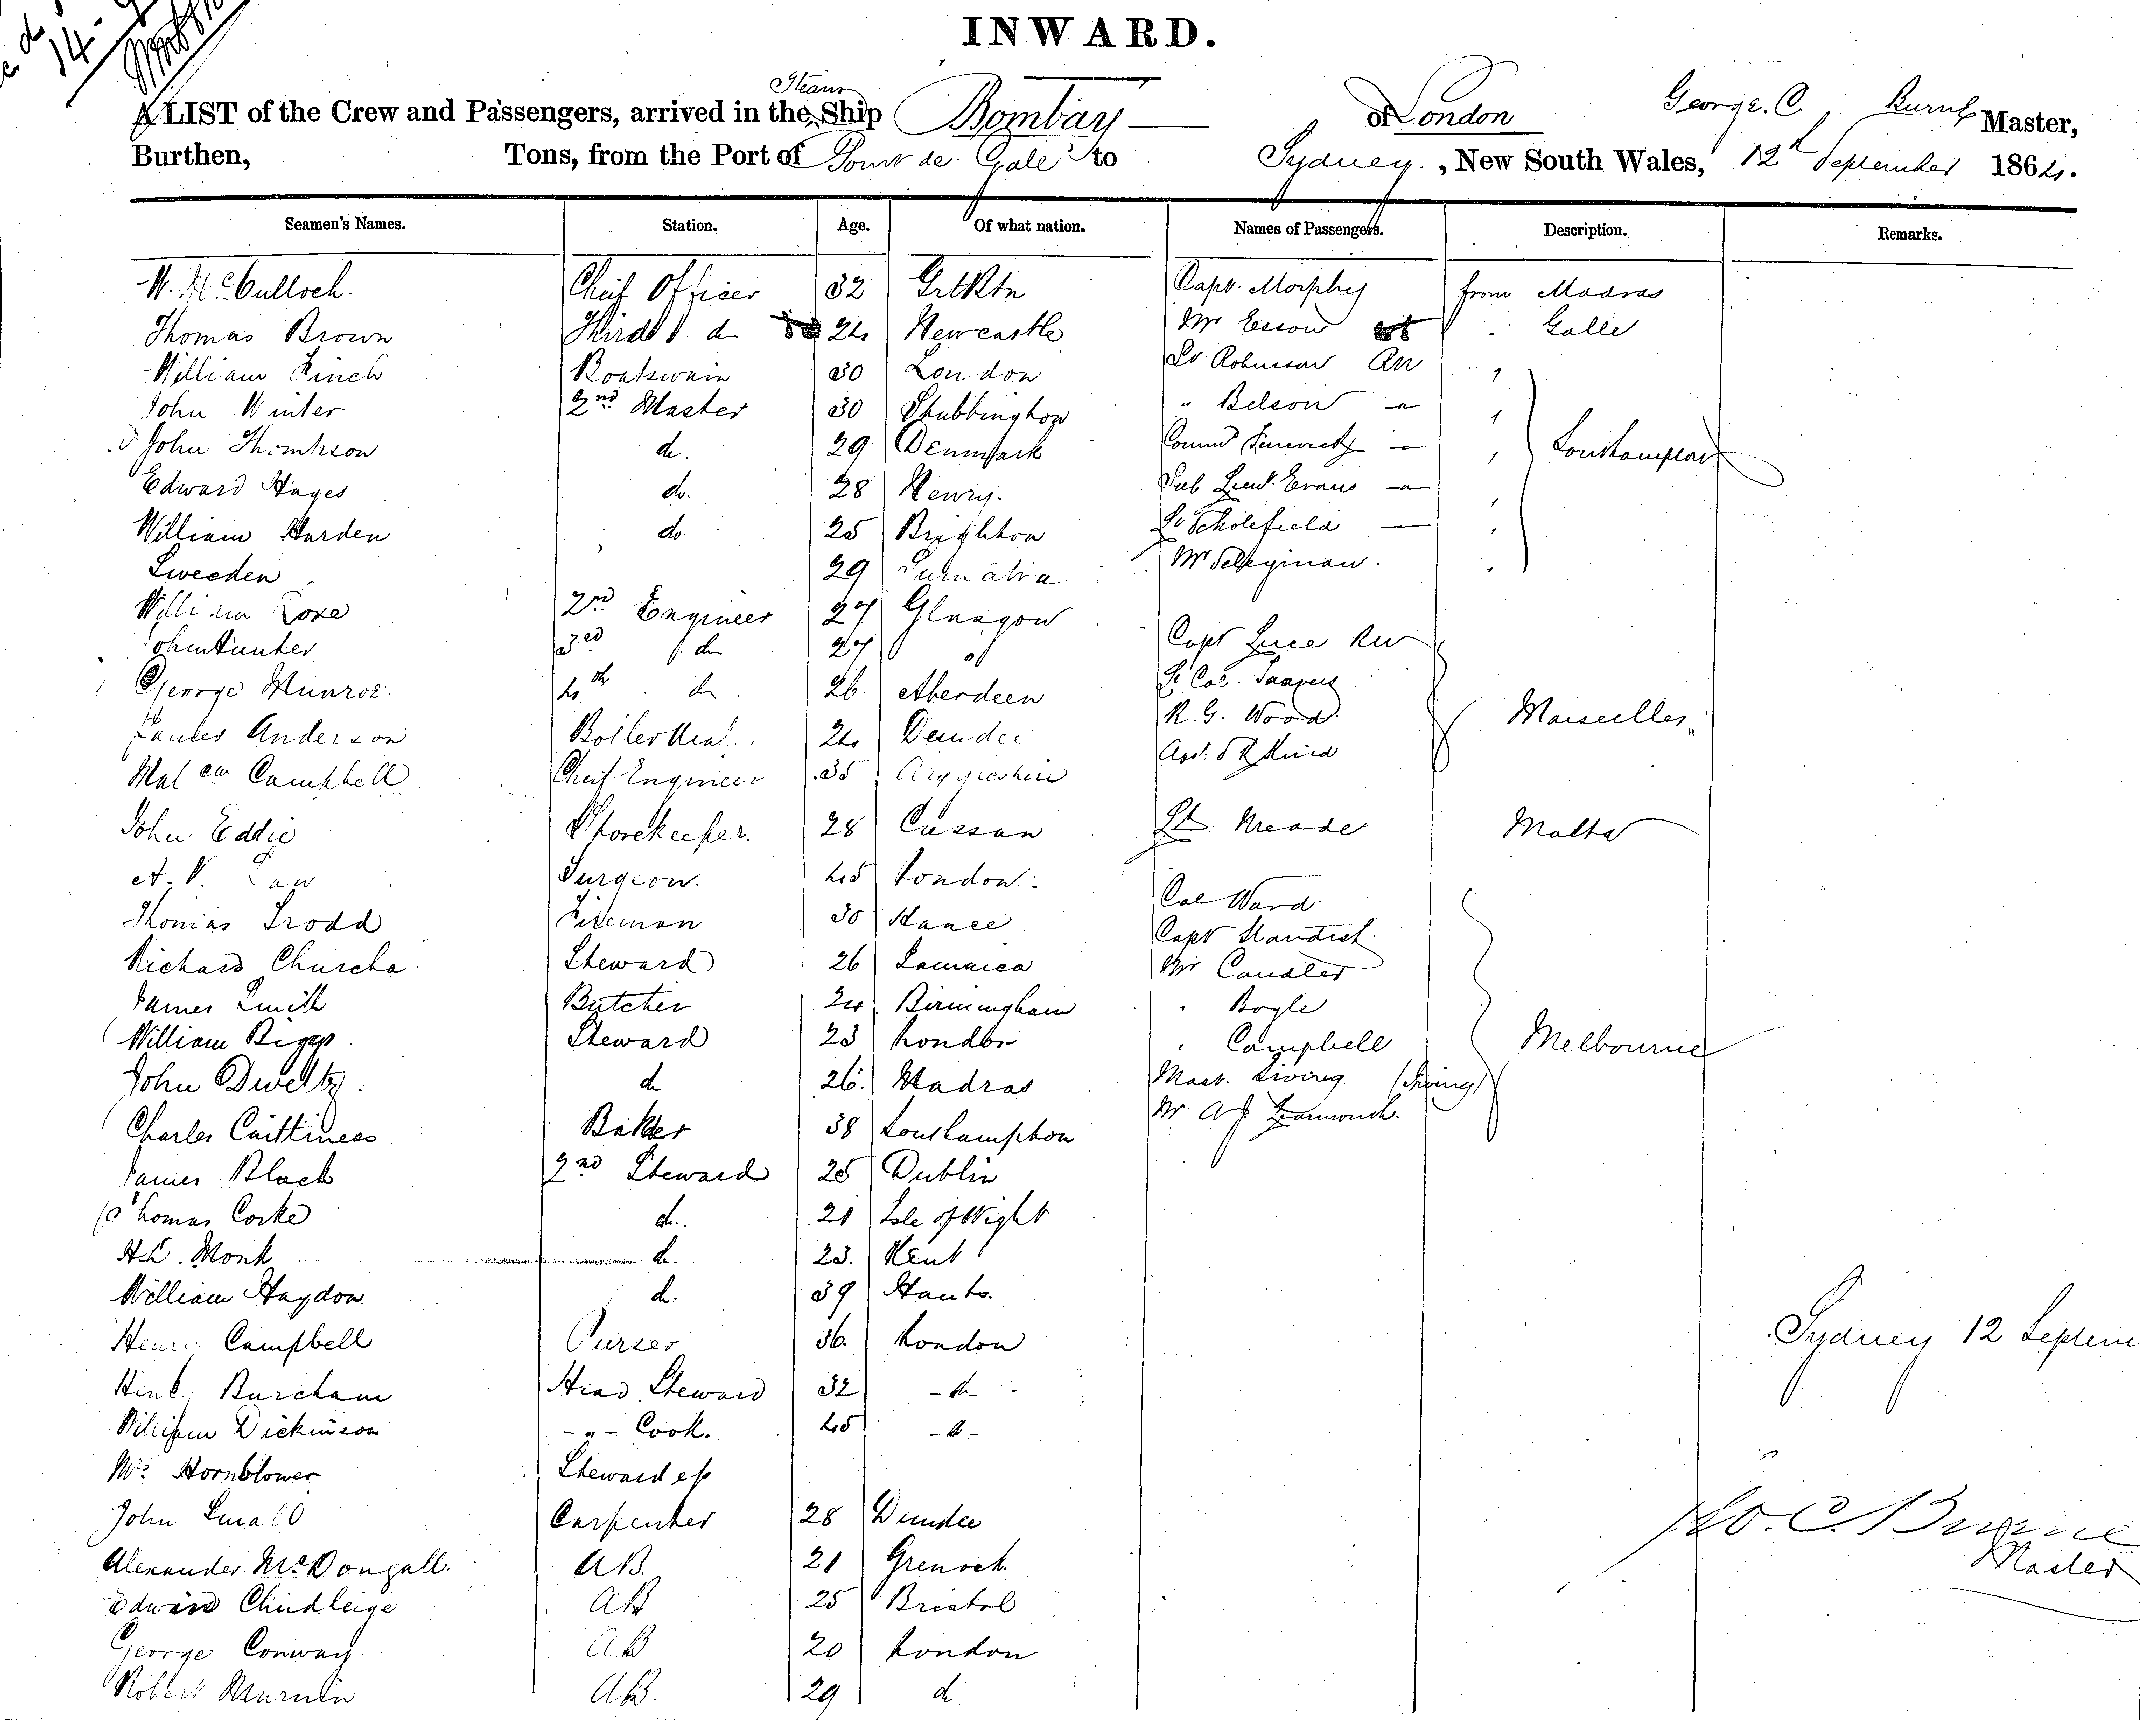 INWARD.
A LIST of the Crew and Passengers, arrived in the Steam Ship Bombay of London George. C. Burne Master,
Burthen, Tons, from the Port of Point de Gale to Sydney, New South Wales, 12th September 1864.
Seamen's Names. Station. Age. Of what nation. Names of Passengers. Description. Remarks.
W. McCulloch. Chief Officer 32 Capt. Morphy from Madras
Thomas Brown Third do 24 Newcastle Mr Galle
William Finch Boatswain 30 London Lt Robinson
John Winter 2nd Master 30 Stubbington " Belson
John Thomson do. 29 Denmark Southampton
Edward Hayes do. 28 Henry. Sub Lieut. Evans
William Harden do. 25 Brighton Lt Scholefield
Sweeden 29 Sumatra Mr
William 2nd Engineer 27 Glasgow
John Hunter 3rd do 27 do Capt Luce
George Munroe 4th do 26 Aberdeen Lt Col.
James Anderson Boiler 24 Dundee R. G. Wood Marseilles
Malcm Campbell Chief Engineer 35
John Eddie Storekeeper. 28 Lt Meade Malta
A. V. Law Surgeon. 45 London.
Thomas Trodd Fireman 30 Col Ward
Richard Steward 26 Jamaica Capt Standish
James Smith Butcher 24 Birmingham Mr Candler
William Biggs Steward 23 London " Boyle
John do 26. Madras " Campbell Melbourne
Charles Baker 38 Southampton Mast. Living (Living)
James Black 2nd Steward 25 Dublin Mr A J
Thomas Corke do. 21 Isle of Wight
H L. Monk do. 23. Kent
William Haydon do. 39 Hants.
Henry Campbell Purser 36. London Sydney 12 Septem
Burcham Head Steward 32 - do -
William Dickinson - " - Cook. 45 - do -
Mrs Hornblower Stewardess
John Small Carpenter 28 Dundee Geo. C. Burne
Alexander McDougall. AB. 21 Grenock. Master
Edwin Chudleige AB 25 Bristol
George Conway AB 20 London
Robert AB. 29 do